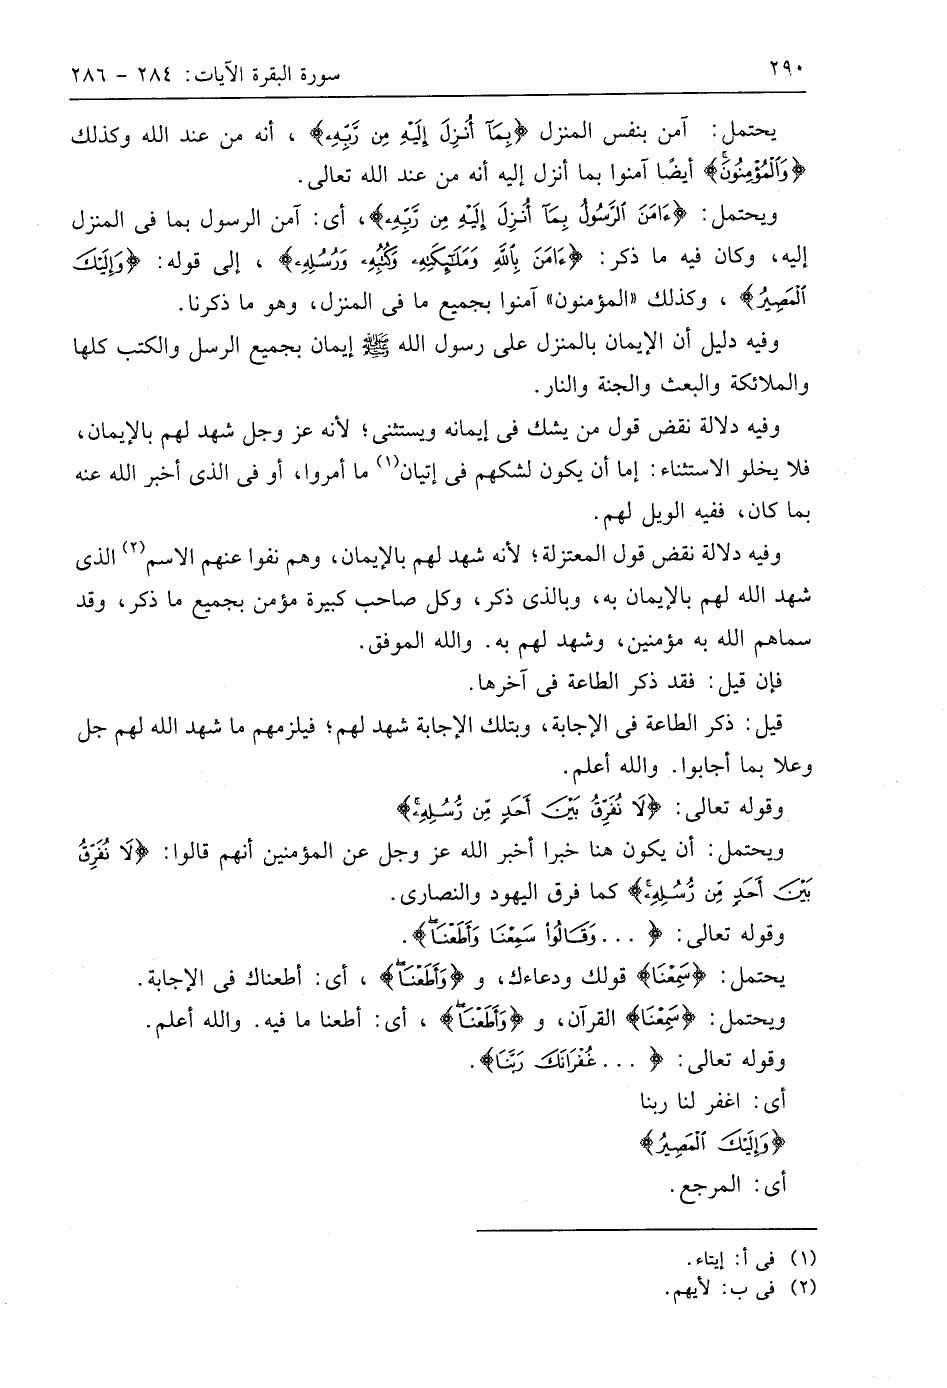 ٢٩٠
سورة البقرة الآيات: ٢٨٤ - ٢٨٦
يحتمل: آمن بنفس المنزل ﴿بِمَآ أُنزِلَ إِلَيْهِ مِن رَّبِّهِۦ﴾ ، أنه من عند الله وكذلك
﴿وَٱلْمُؤْمِنُونَۚ﴾ أيضًا آمنوا بما أنزل إليه أنه من عند الله تعالى.
ويحتمل: ﴿ءَامَنَ ٱلرَّسُولُ بِمَآ أُنزِلَ إِلَيْهِ مِن رَّبِّهِۦ﴾، أى: آمن الرسول بما فى المنزل
إليه، وكان فيه ما ذكر: ﴿ءَامَنَ بِٱللَّهِ وَمَلَٰٓئِكَتِهِۦ وَكُتُبِهِۦ وَرُسُلِهِۦ﴾ ، إلى قوله: ﴿وَإِلَيْكَ
ٱلْمَصِيرُ﴾ ، وكذلك «المؤمنون» آمنوا بجميع ما فى المنزل، وهو ما ذكرنا.
وفيه دليل أن الإيمان بالمنزل على رسول الله ﷺ إيمان بجميع الرسل والكتب كلها
والملائكة والبعث والجنة والنار.
وفيه دلالة نقض قول من يشك فى إيمانه ويستثنى؛ لأنه عز وجل شهد لهم بالإيمان،
فلا يخلو الاستثناء: إما أن يكون لشكهم فى إتيان(١) ما أمروا، أو فى الذى أخبر الله عنه
بما كان، ففيه الويل لهم.
وفيه دلالة نقض قول المعتزلة؛ لأنه شهد لهم بالإيمان، وهم نفوا عنهم الاسم(٢) الذى
شهد الله لهم بالإيمان به، وبالذى ذكر، وكل صاحب كبيرة مؤمن بجميع ما ذكر، وقد
سماهم الله به مؤمنين، وشهد لهم به. والله الموفق.
فإن قيل: فقد ذكر الطاعة فى آخرها.
قيل: ذكر الطاعة فى الإجابة، وبتلك الإجابة شهد لهم؛ فيلزمهم ما شهد الله لهم جل
وعلا بما أجابوا. والله أعلم.
وقوله تعالى: ﴿لَا نُفَرِّقُ بَيْنَ أَحَدٍ مِّن رُّسُلِهِۦۚ﴾
ويحتمل: أن يكون هنا خبرا أخبر الله عز وجل عن المؤمنين أنهم قالوا: ﴿لَا نُفَرِّقُ
بَيْنَ أَحَدٍ مِّن رُّسُلِهِۦۚ﴾ كما فرق اليهود والنصارى.
وقوله تعالى: ﴿ ... وَقَالُوا۟ سَمِعْنَا وَأَطَعْنَاۖ﴾.
يحتمل: ﴿سَمِعْنَا﴾ قولك ودعاءك، و ﴿وَأَطَعْنَاۖ﴾ ، أى: أطعناك فى الإجابة.
ويحتمل: ﴿سَمِعْنَا﴾ القرآن، و ﴿وَأَطَعْنَاۖ﴾ ، أى: أطعنا ما فيه. والله أعلم.
وقوله تعالى: ﴿ ... غُفْرَانَكَ رَبَّنَا﴾.
أى: اغفر لنا ربنا
﴿وَإِلَيْكَ ٱلْمَصِيرُ﴾
أى: المرجع.
(١) فى أ: إيتاء.
(٢) فى ب: لأيهم.